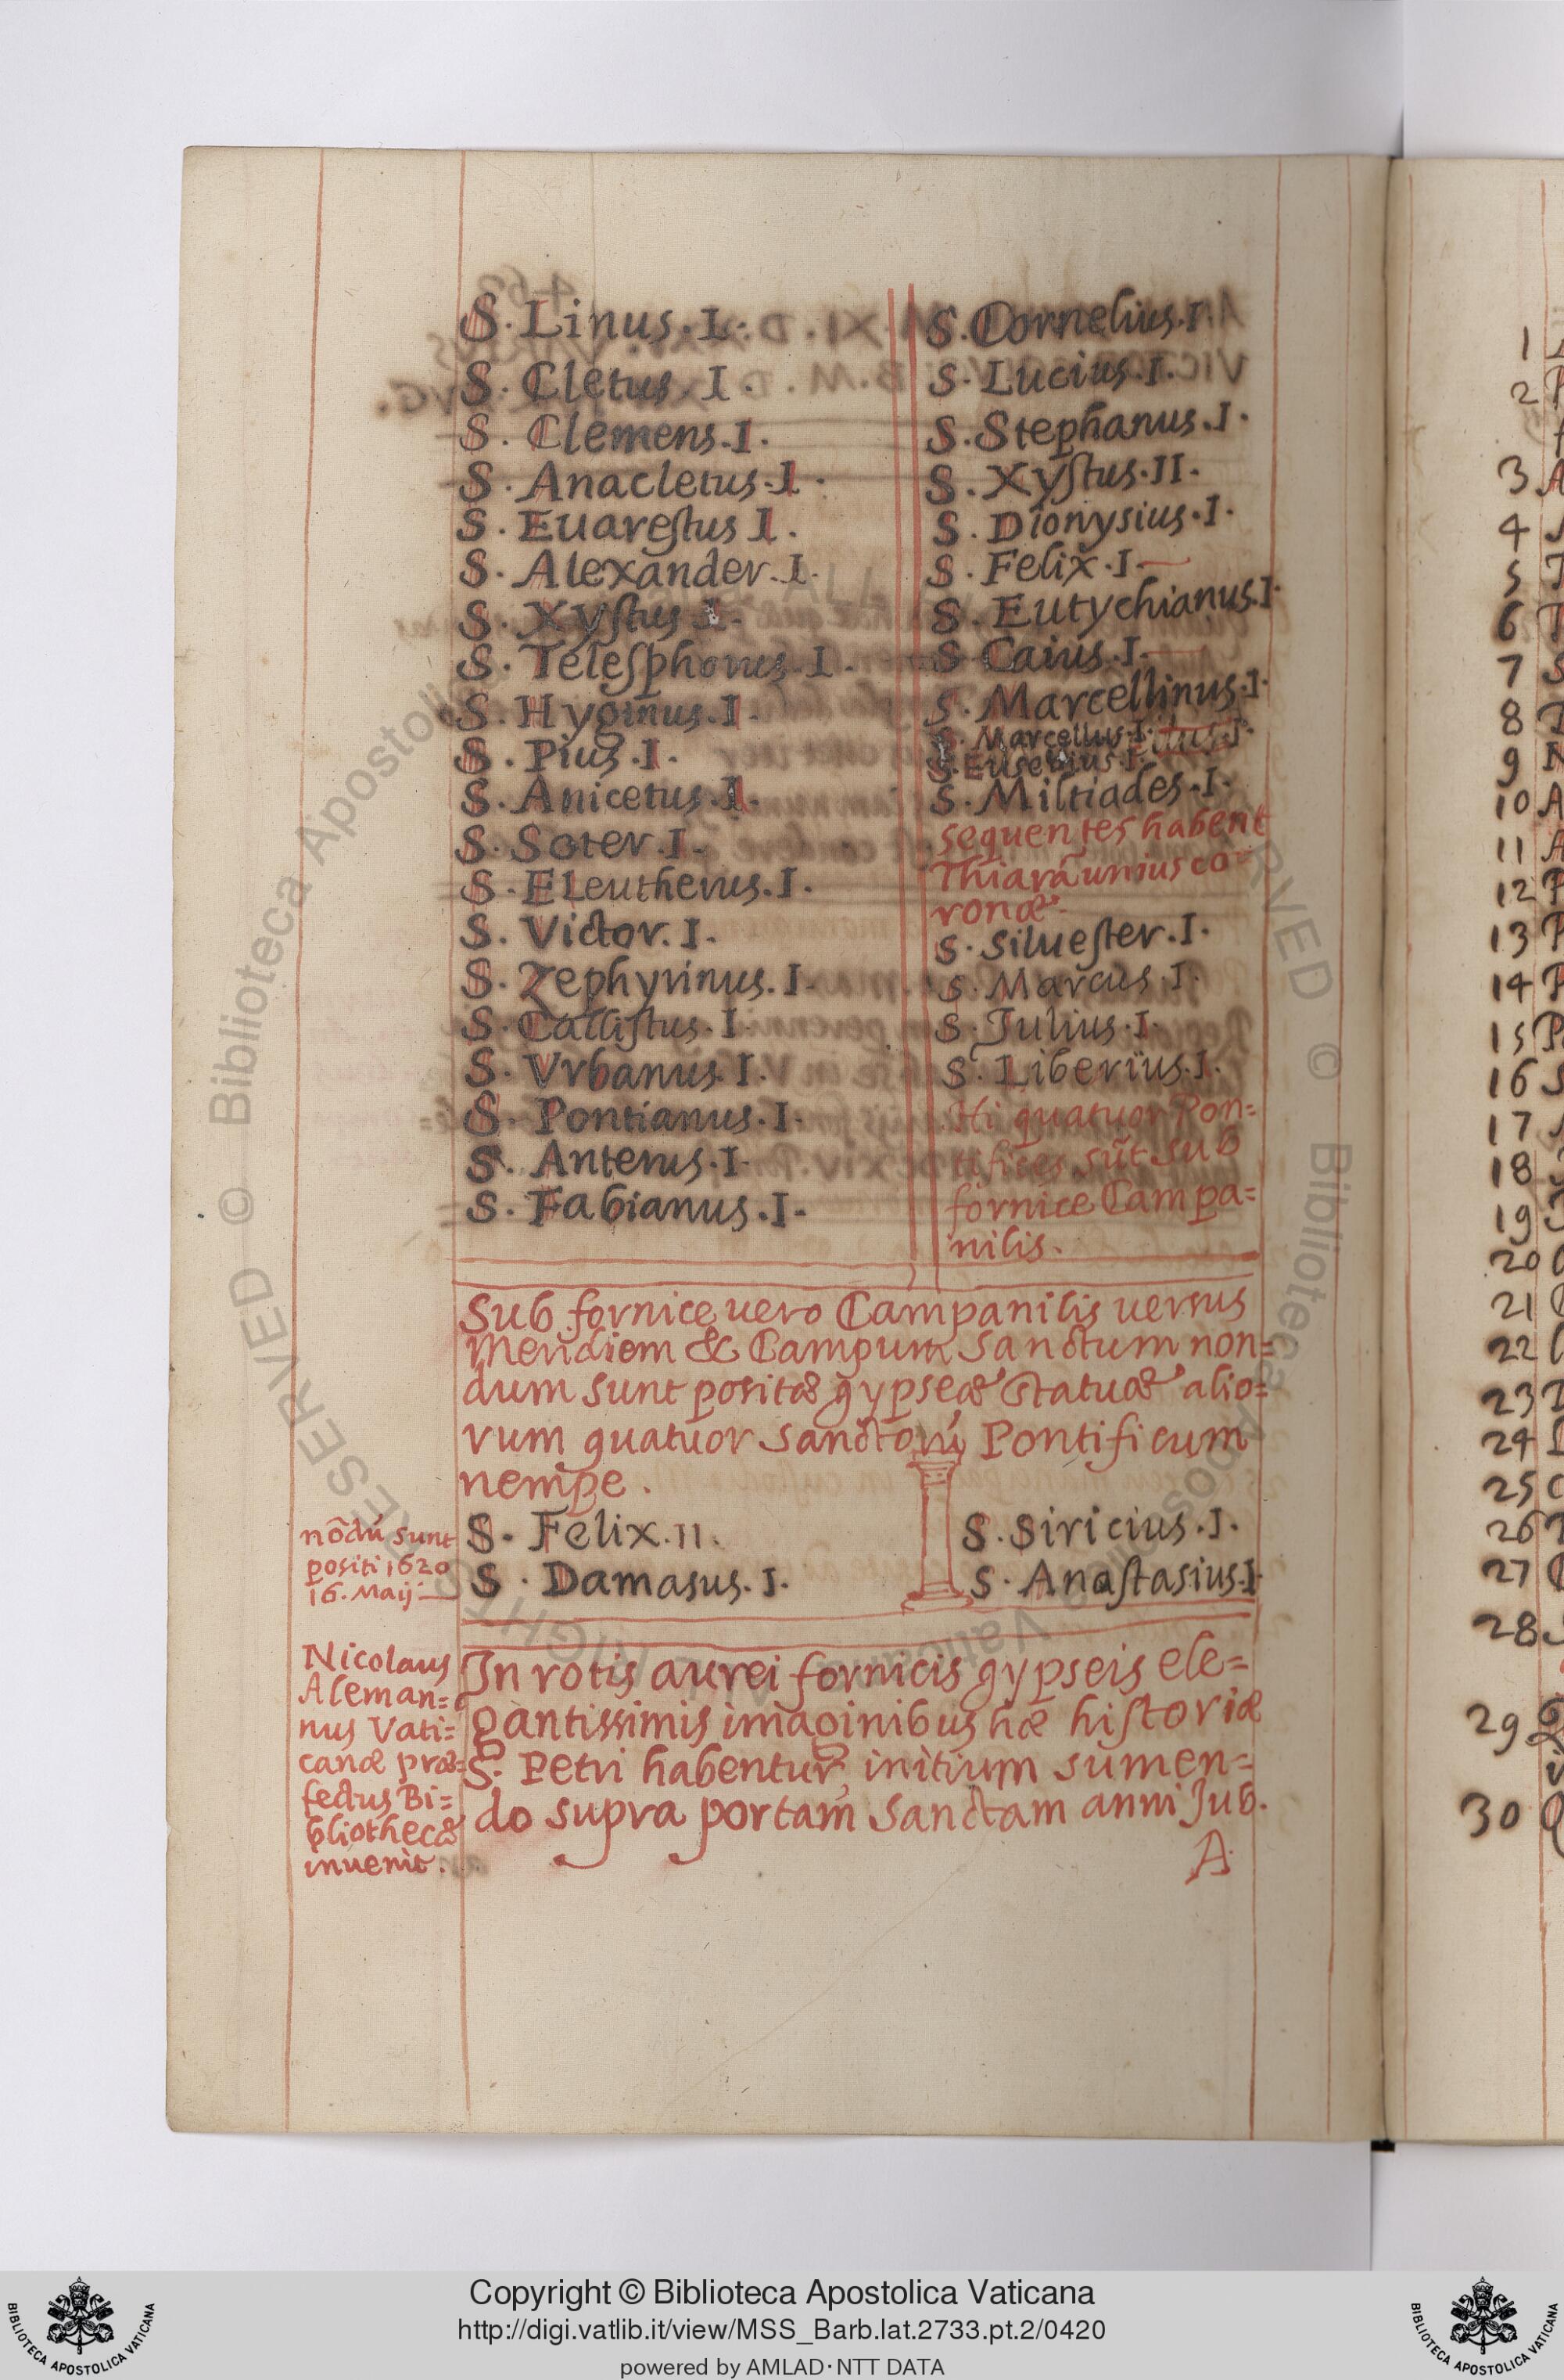 S. Linus. I.
S. Cletus. I.
S. Clemens. I.
S. Anacletus. I.
S. Euarestus I.
S. Alexander. I.
S. Xystus. I.
S. Telesphorus. I.
S. Hyginus. I.
S. Pius. I.
S. Anicetus. I.
S. Soter. I.
S. Eleutherus. I.
S. Victor. I.
S. Zephyrinus. I.
S. Callistus. I.
S. Vrbanus. I.
S. Pontianus. I.
S. Anterus. I.
S. Fabianus. I.
S. Cornelius. I.
S. Lucius. I.
S. Stephanus. I.
S. Xystus. II.
S. Dionysius. I.
S. Felix. I.
S. Eutychianus. I.
S Caius. I.
S. Marcellinus. I.
S. Marcellus. I.
S. Eusebius. I.
S. Miltiades. I.
sequentes habent
Thiarã unius co
ronæ.
S. Siluester. I.
S. Marcus. I.
S. Julius. I.
S. Liberius. I.
Hi quatuor Pon=
tifices sũt sub
fornice Campa=
nilis.
Sub fornice uero Campanilis uersus
Meridiem & Campum Sanctum non=
dum sunt positæ gypseæ Statuæ alio=
rum quatuor Sanctorũ Pontificum
nempe.
nõdũ sunt
positi 1620
16. Maij
S. Felix. II.
S. Damasus. I.
S. Siricius. I.
S. Anastasius. I.
Nicolaus
Aleman=
nus Vati=
canæ præ=
fectus Bi=
bliothecæ
inuenit.
In rotis aurei fornicis gypseis ele=
gantissimis imaginibus hæ historiæ
S. Petri habentur, initium sumen=
do supra portam Sanctam anni Jub.
A
1
2
3 A
4
5
6
7 S
8
9 N
10 A
11 A
12 P
13 P
14 P
15 P
16 S
17
18
19
20
21
22
23
24
25
26
27
28
29
30
Copyright © Biblioteca Apostolica Vaticana
http://digi.vatlib.it/view/MSS_Barb.lat.2733.pt.2/0420
powered by AMLAD·NTT DATA
BIBLIOTECA APOSTOLICA VATICANA
BIBLIOTECA APOSTOLICA VATICANA